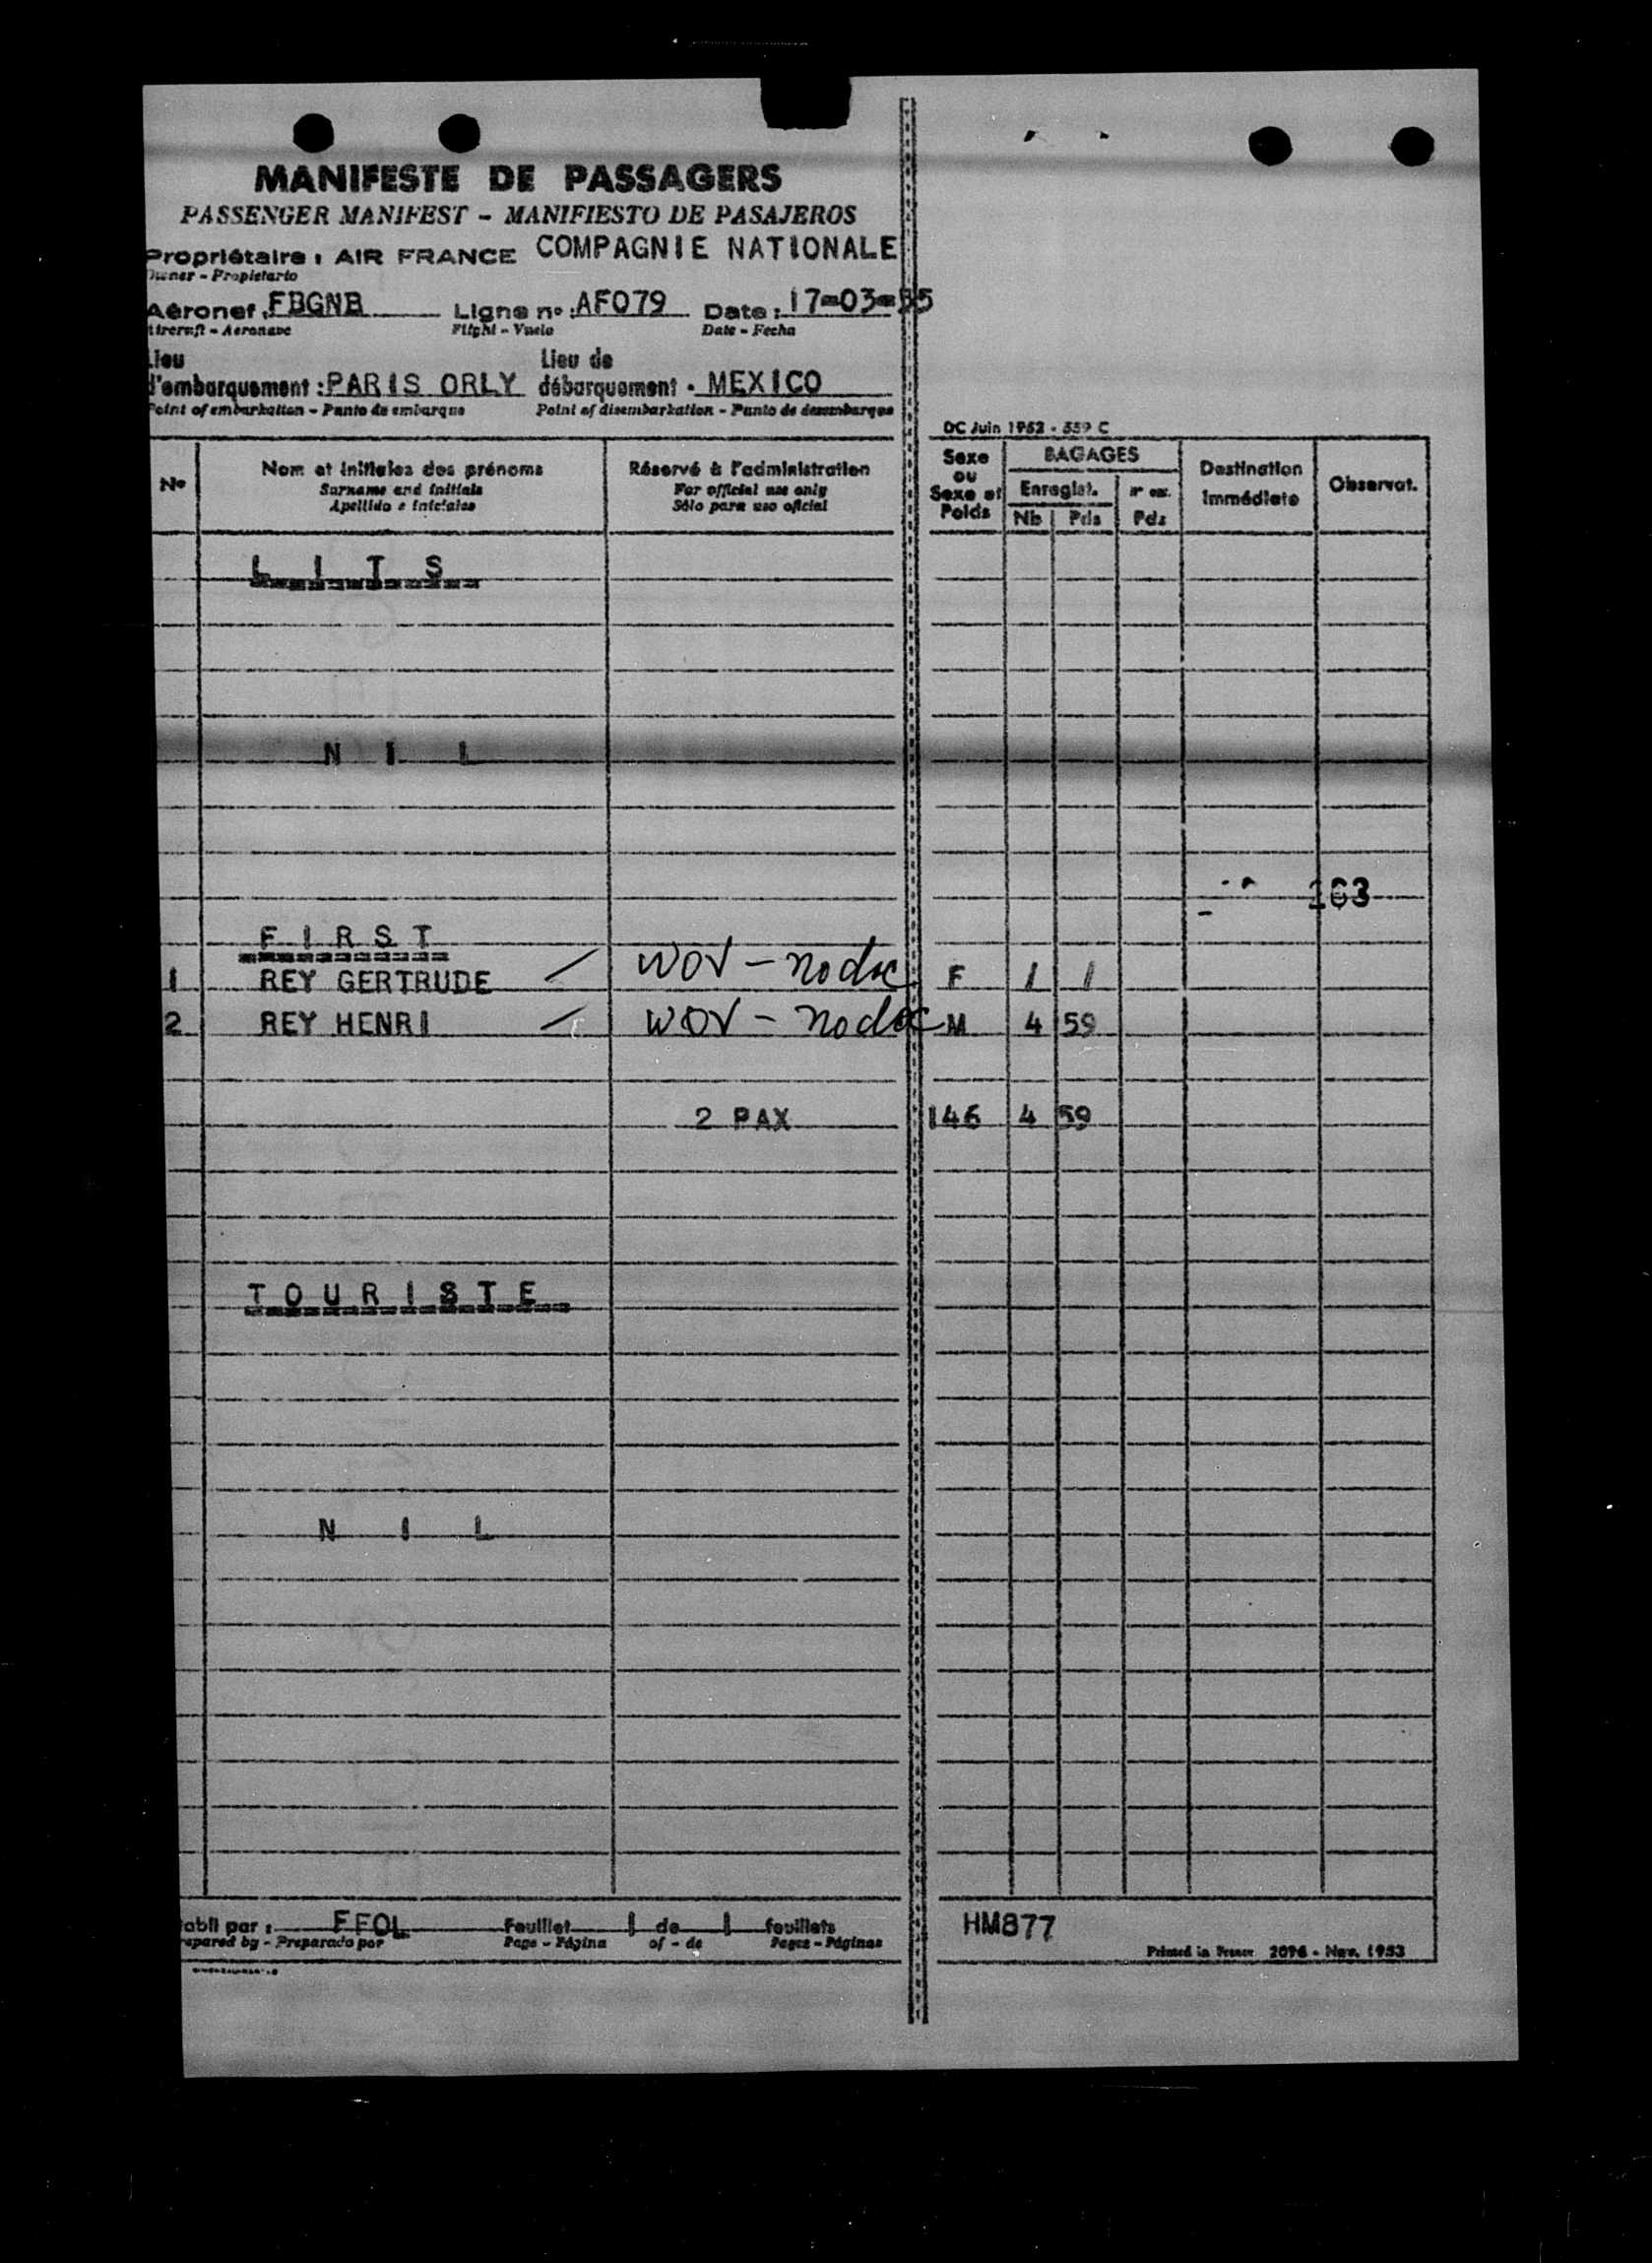 MANIFESTE DE PASSAGERS
PASSENGER MANIFEST - MANIFIESTO DE PASAJEROS
Propriétaire : AIR FRANCE COMPAGNIE NATIONALE
Owner - Propietario
Aéronef : FBGNB Ligne nº : AF079 Date : 17-03-55
Aircraft - Aeronave Flight - Vuelo Date - Fecha
Lieu Lieu de
d'embarquement : PARIS ORLY débarquement - MEXICO
Point of embarkation - Punto de embarque Point of disembarkation - Punto de desembarque
DC Juin 1952 - 559 C
Nº Nom et initiales des prénoms Réservé à l'administration Sexe ou Sexe et Poids BAGAGES Destination immédiate Observat.
Surname and initials For official use only Enregist.
Apellido e iniciales Sólo para uso oficial Nb Pds Pds
L I T S
N I L
163
F I R S T
1 REY GERTRUDE / WOV - no doc F / /
2 REY HENRI / WOV - no doc M 4 59
2 PAX 146 4 59
T O U R I S T E
N I L
tabli par : FFOL Feuillet 1 de 1 feuillets HM877
epared by - Preparado por Page - Página of - de Pages - Páginas Printed in France 2096 - Nov. 1953